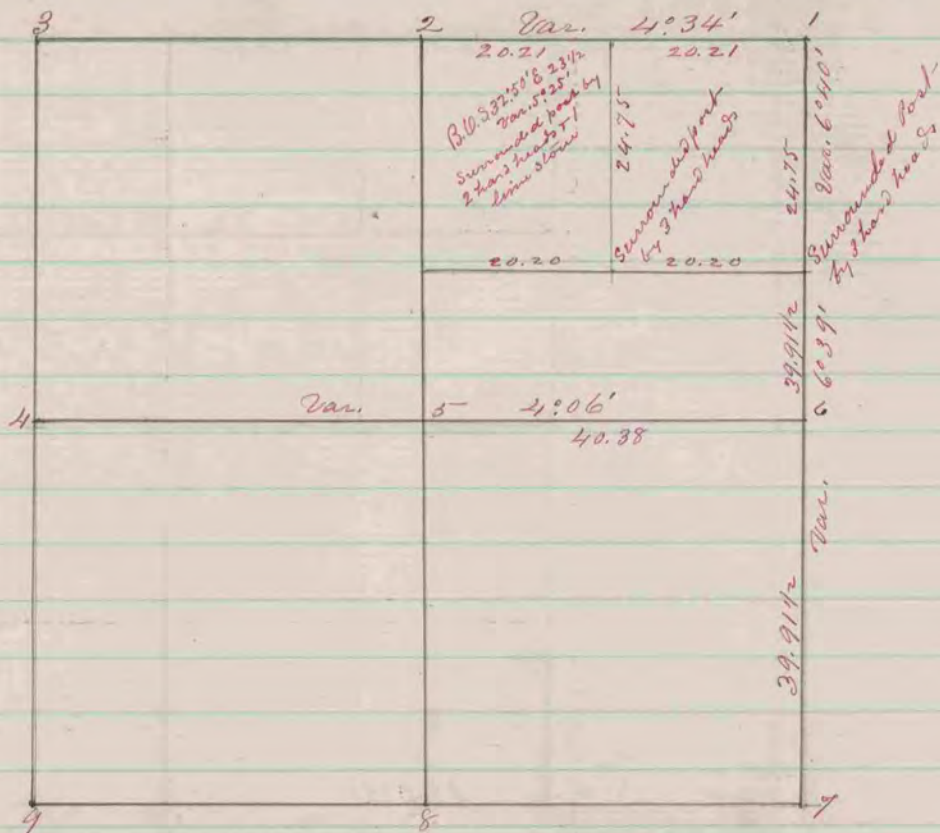 3 2 Var. 4°34' 1
20.21 20.21
B.O. S32°50'E 23½
Var. 5°25'
Surrounded post by
2 hard heads + 1
lime stone
24.75
Surrounded post
by 3 hard heads
24.75
Var. 6°40'
Surrounded Post
by 3 hard heads
20.20 20.20
39.91½
6°39'
4 Var. 5 4°06' 6
40.38
Var.
39.91½
9 8 7